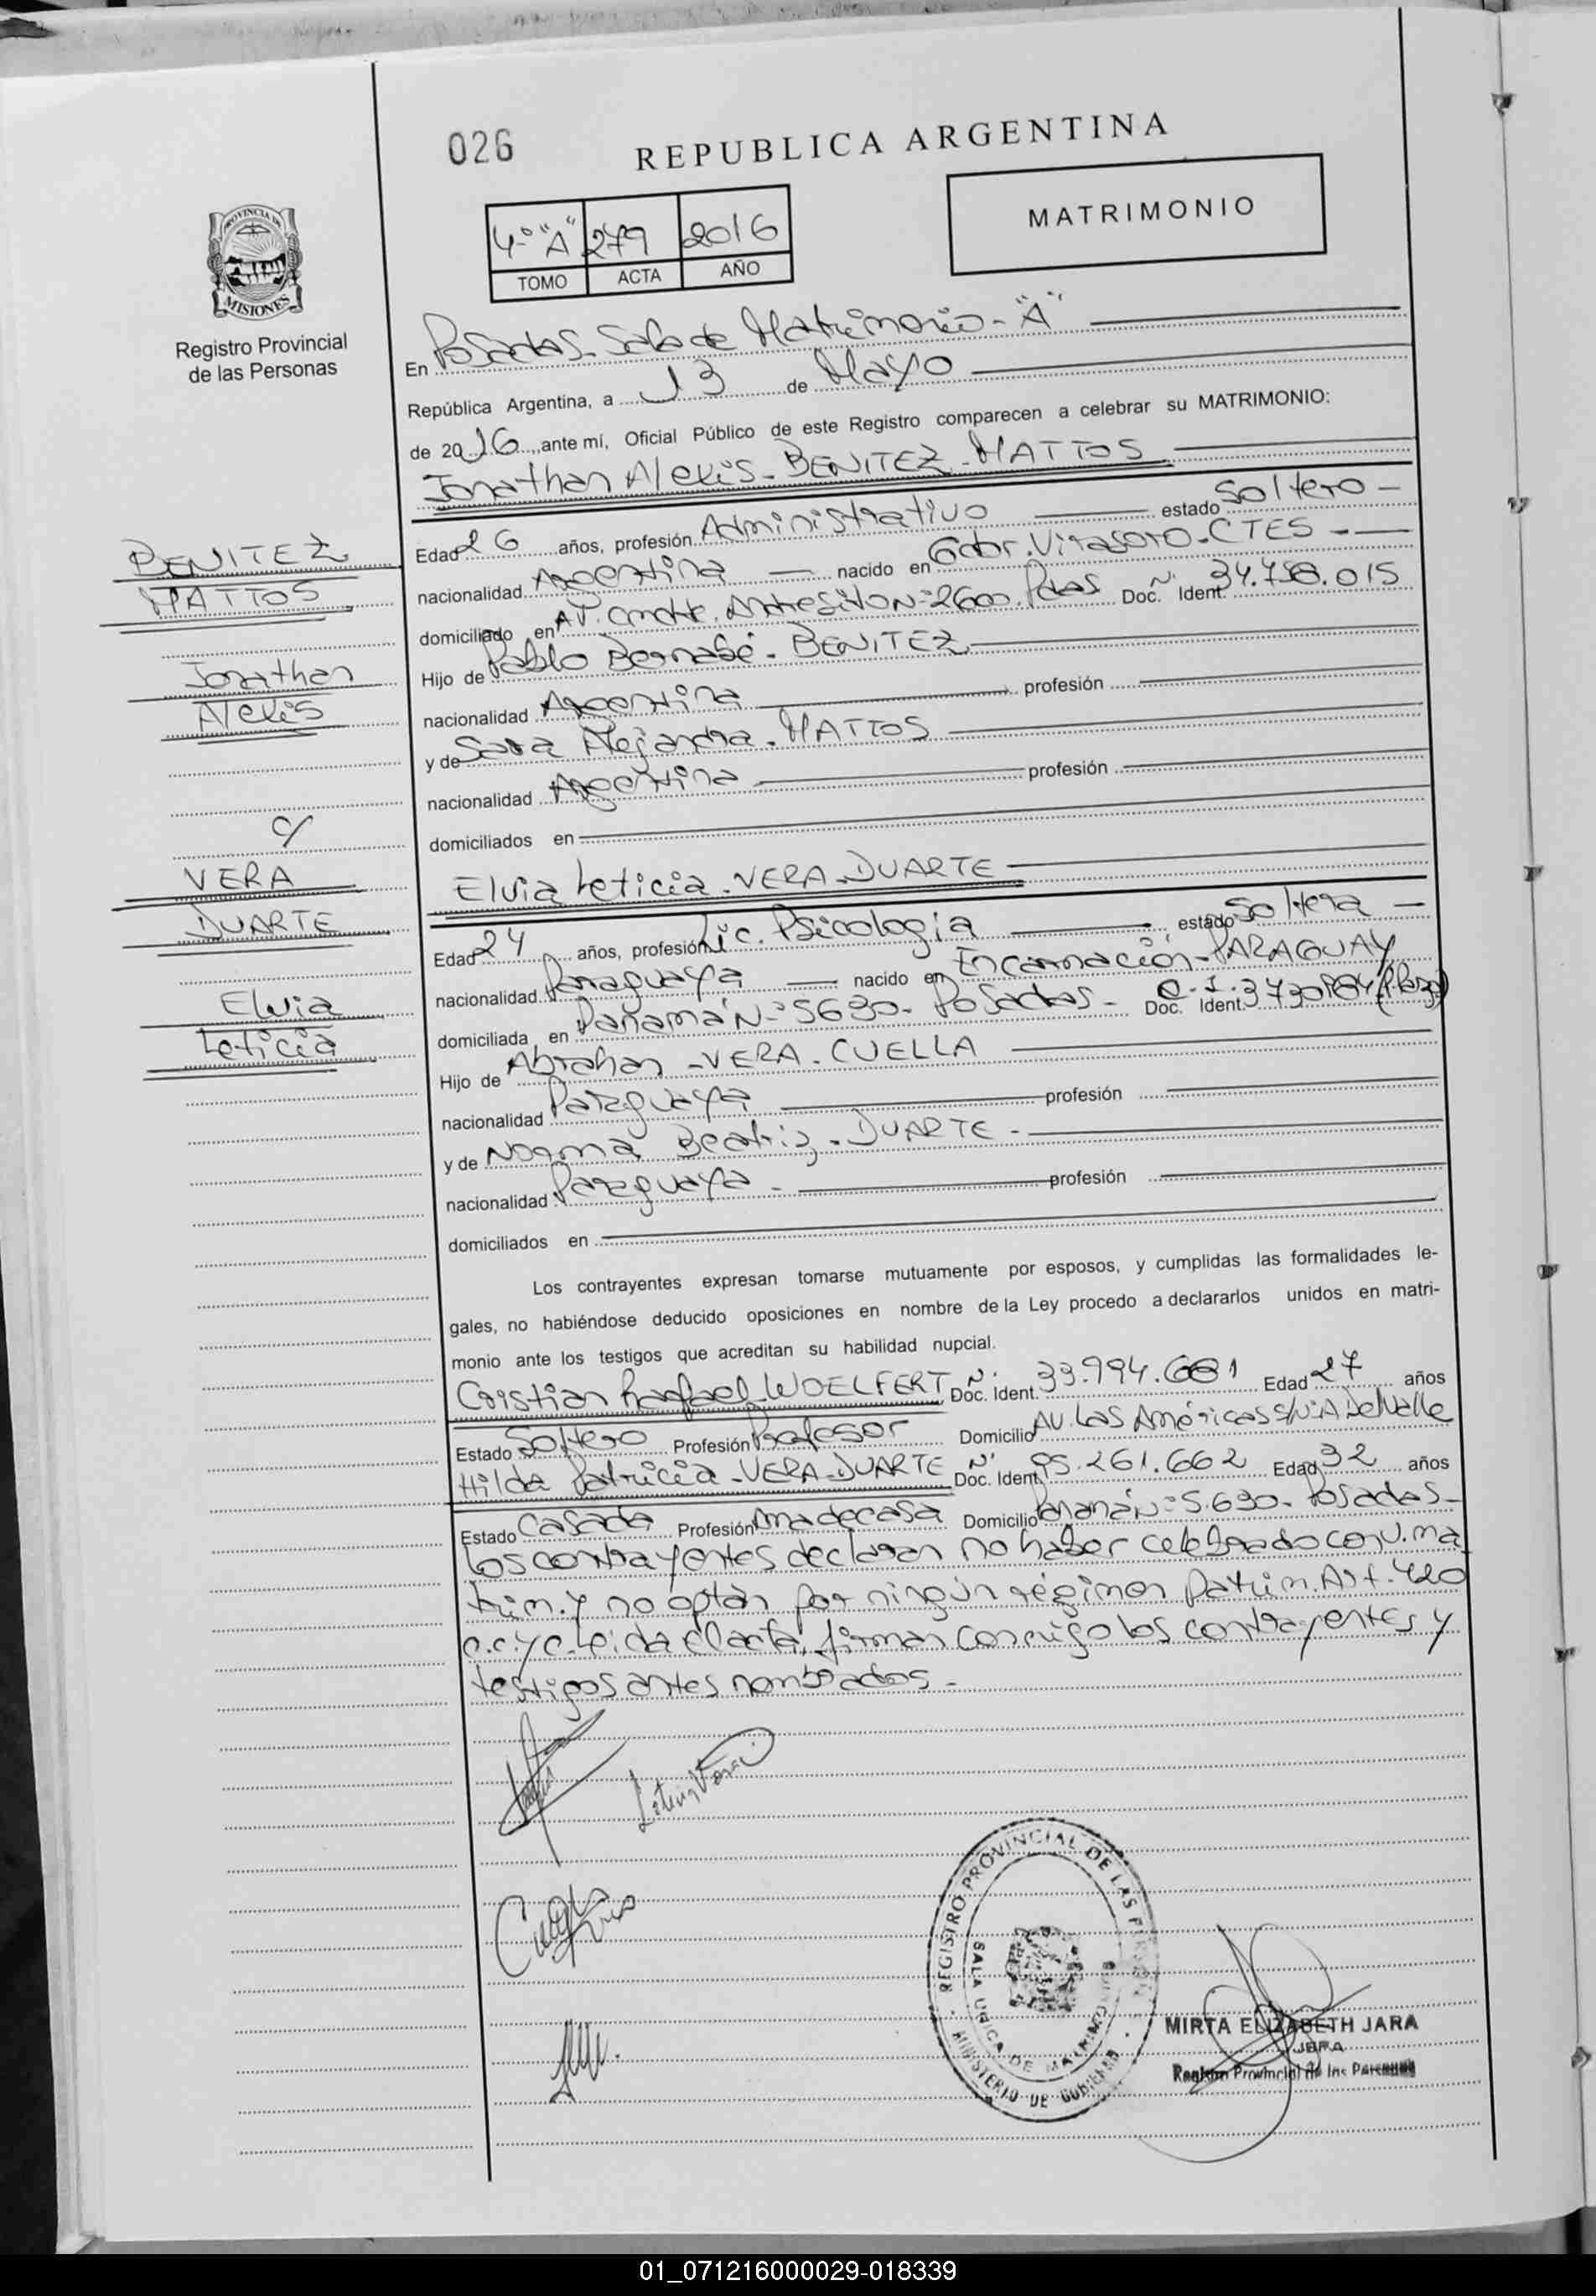 026
REPUBLICA ARGENTINA
PROVINCIA DE
MISIONES
Registro Provincial
de las Personas
4-º "A" 279 2016
TOMO ACTA AÑO
MATRIMONIO
En Posadas-Sala de Matrimonio-"A"
República Argentina, a 13 de Mayo
de 2016 ante mí, Oficial Público de este Registro comparecen a celebrar su MATRIMONIO:
Jonathan Alexis-BENITEZ-MATTOS
BENITEZ
MATTOS
Jonathan
Alexis
c/
VERA
DUARTE
Elvia
Leticia
Edad 26 años, profesión Administrativo estado Soltero-
nacionalidad Argentina nacido en Gdor. Virasoro-CTES-
domiciliado en AV. Cmdte. Andresito Nº 2600. Pdas Doc. Ident. Nº 34.758.015
Hijo de Pablo Bernabé-BENITEZ
nacionalidad Argentina profesión
y de Sara Alejandra-MATTOS
nacionalidad Argentina profesión
domiciliados en
Elvia Leticia-VERA-DUARTE
Edad 24 años, profesión Lic. Psicología estado Soltera-
nacionalidad Paraguaya nacido en Encarnación-PARAGUAY
domiciliada en Panamá Nº 5690-Posadas- Doc. Ident. C.I.
Hijo de Abrahan-VERA-CUELLA
nacionalidad Paraguaya profesión
y de Norma Beatriz-DUARTE-
nacionalidad Paraguaya- profesión
domiciliados en
Los contrayentes expresan tomarse mutuamente por esposos, y cumplidas las formalidades le-
gales, no habiéndose deducido oposiciones en nombre de la Ley procedo a declararlos unidos en matri-
monio ante los testigos que acreditan su habilidad nupcial.
Cristian Rafael WOELFERT Doc. Ident. Nº 33.994.681 Edad 27 años
Estado Soltero Profesión Profesor Domicilio AV. Las Américas S/Nº A. Del Valle
Hilda Patricia-VERA-DUARTE Doc. Ident. Nº 95.261.662 Edad 32 años
Estado Casada Profesión Ama de casa Domicilio Panamá Nº 5.690-Posadas-
Los contrayentes declaran no haber celebrado conv. ma
trim. y no optan por ningún régimen patrim. Art. 420
c.c.y c. Leida el acta, firman conmigo los contrayentes y
testigos antes nombrados-
Leticia Vera
REGISTRO PROVINCIAL DE LAS PERSONAS
SALA UNICA DE MATRIMONIOS
MINISTERIO DE GOBIERNO
MIRTA ELIZABETH JARA
JEFA
Registro Provincial de las Personas
01_071216000029-018339